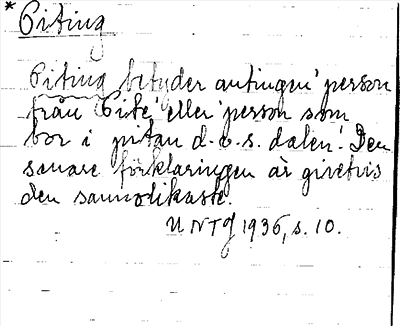 * Piting
Piting betyder antingen 'person
från Pite' eller 'person som
bor i pitan d.v.s. dalen'. Den
senare förklaringen är givetvis
den sannolikaste.
UNTg 1936, s. 10.